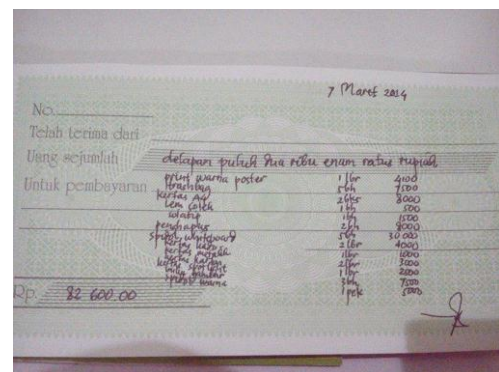 7 Maret 2014
No.
Telah terima dari
Uang sejumlah delapan puluh dua ribu enam ratus rupiah
Untuk pembayaran print warna poster 1 lbr 4100
trashbag 5bh 7500
kertas A4 8000
lem colek 1bh 500
1bh 1500
penghapus 2bh 8000
spidol whiteboard 5bh 30.000
kertas 2lbr 4000
kertas 1lbr 1000
kertas 2lbr 3000
1lbr 2000
3bh 7500
1pek 5000
Rp. 82 600.00